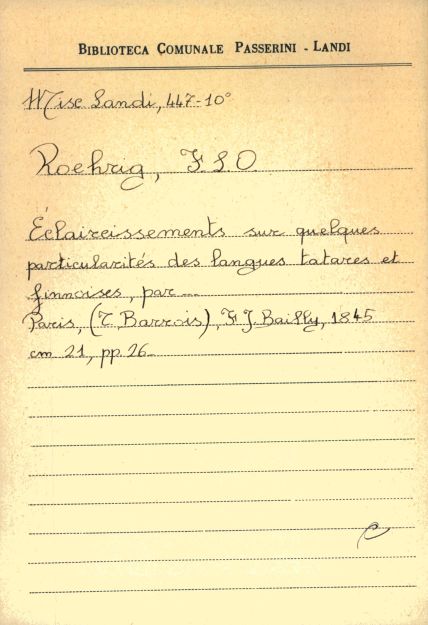 BIBLIOTECA COMUNALE PASSERINI - LANDI
Misc Landi, 447-10°
Roehrig, F. L. O.
Éclaircissements sur quelques
particularités des langues tatares et
finnoises, par...
Paris, (T. Barrois), F. J. Bailly, 1845
cm 21, pp. 26